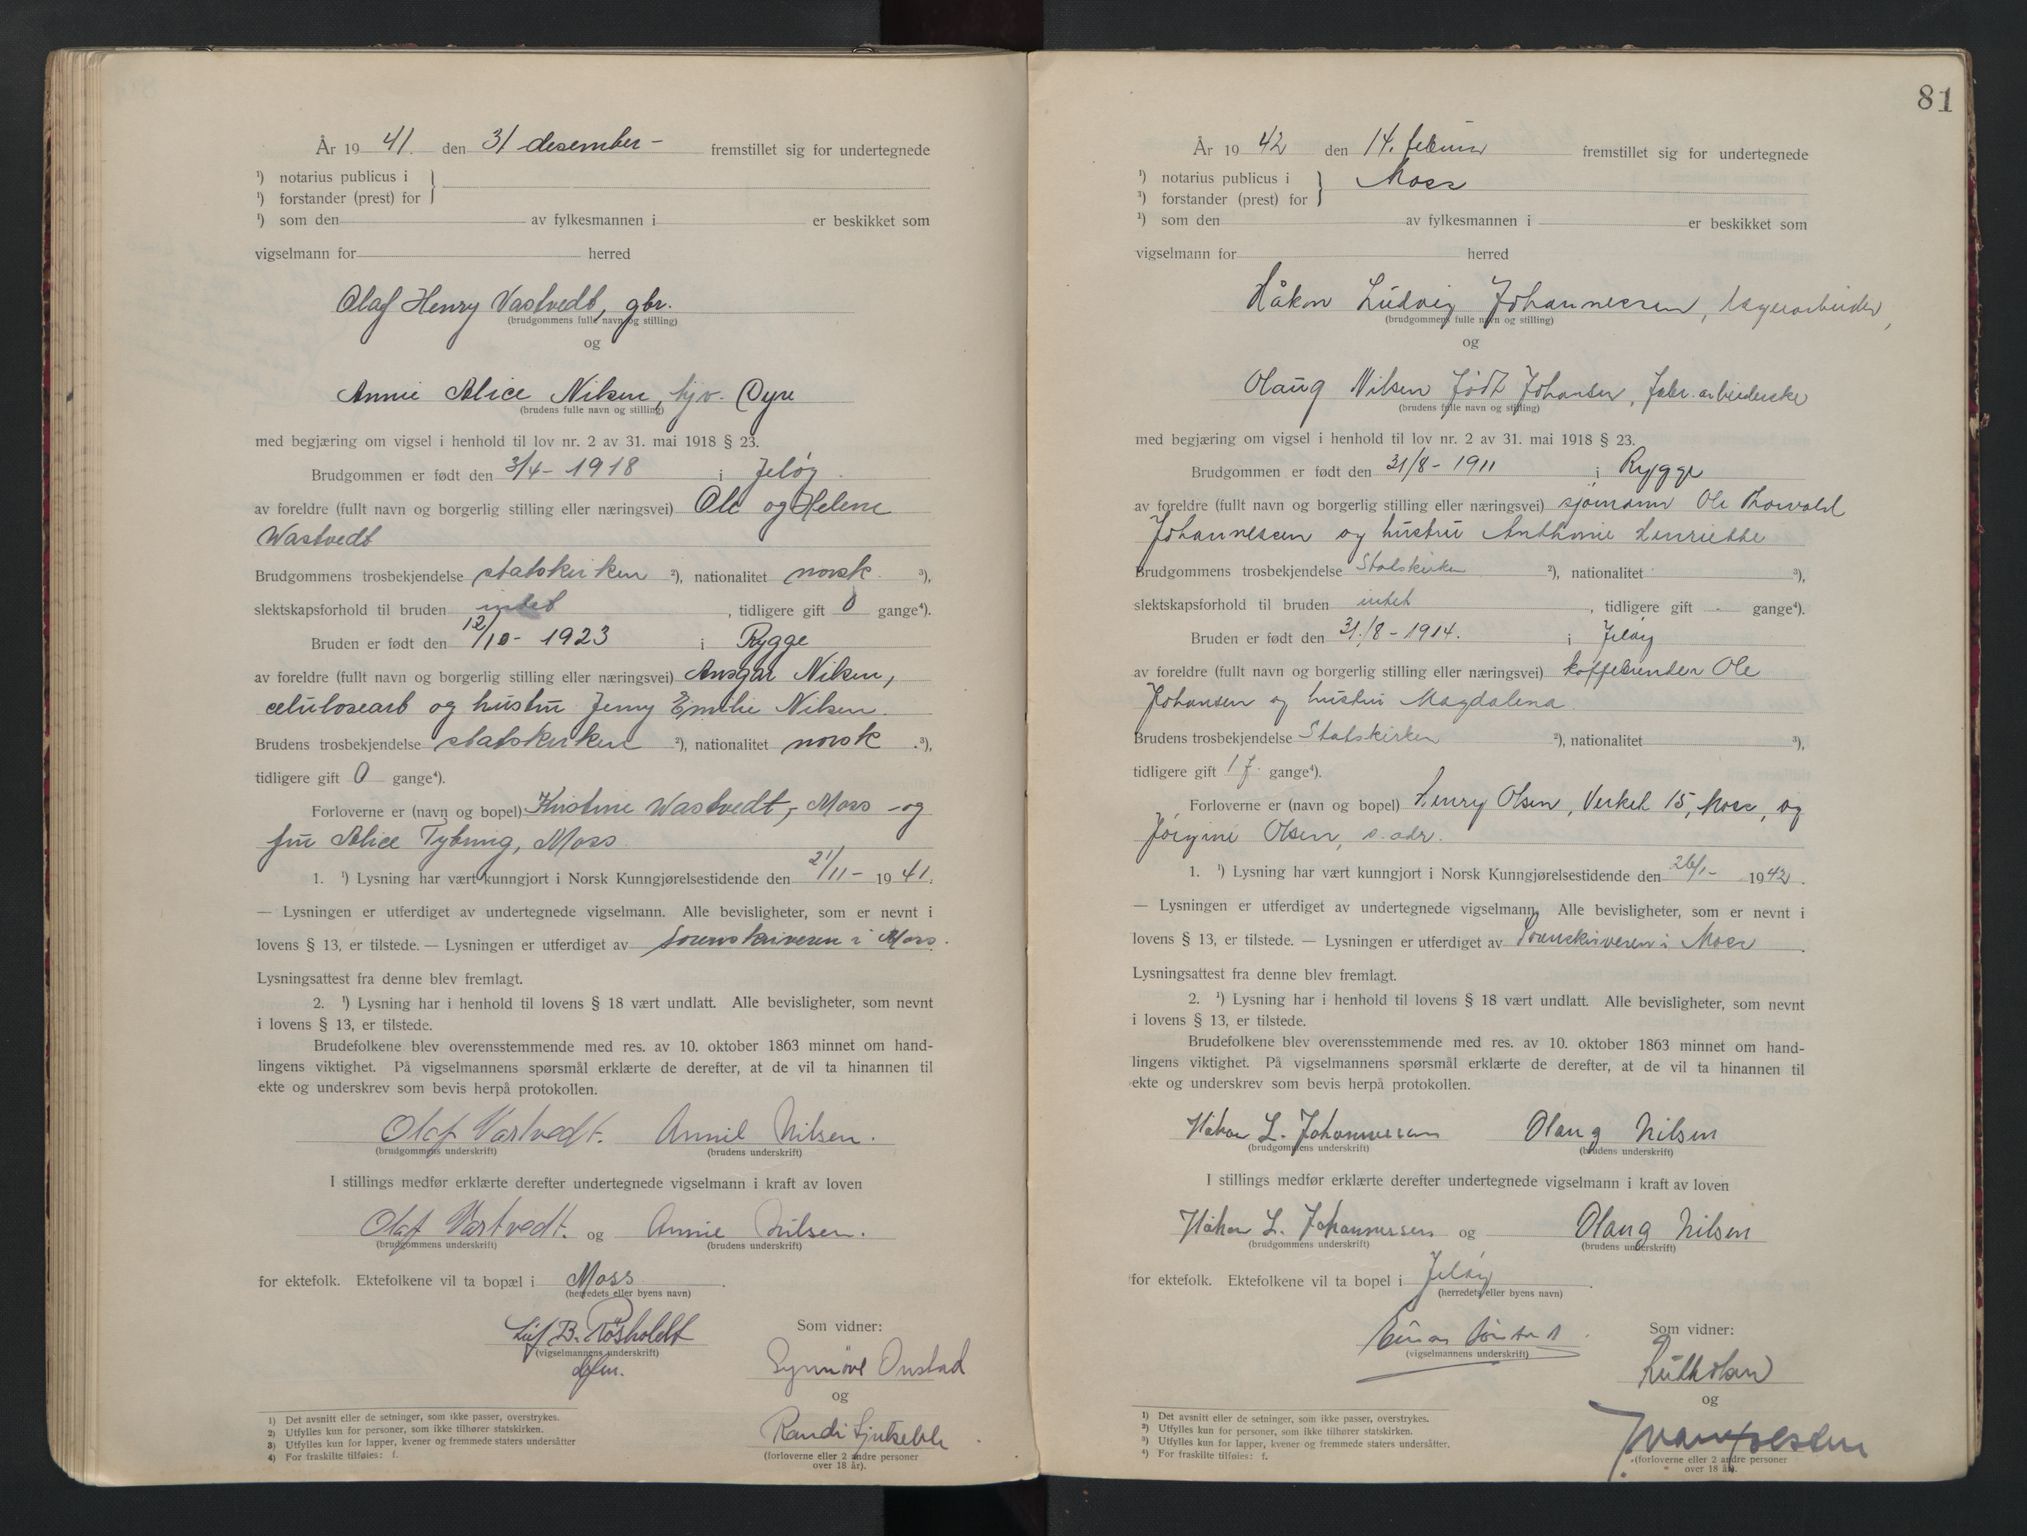 År 1941. den 31 desember - fremstillet sig for undertegnede
¹) notarius publicus i
¹) forstander (prest) for
¹) som den av fylkesmannen i er beskikket som
vigselmann for herred
Olaf Henry Vastvedt, gbr.
(brudgommens fulle navn og stilling)
og
Annie Alice Nilsen, hjv. Øyre
(brudens fulle navn og stilling)
med begjæring om vigsel i henhold til lov nr. 2 av 31. mai 1918 § 23.
Brudgommen er født den 3/4 - 1918 i Jeløy.
av foreldre (fullt navn og borgerlig stilling eller næringsvei) Ole og Helene
Wastvedt
Brudgommens trosbekjendelse statskirken ²), nationalitet norsk. ³),
slektskapsforhold til bruden intet, tidligere gift 0 gange⁴).
Bruden er født den 12/10 - 1923 i Rygge
av foreldre (fullt navn og borgerlig stilling eller næringsvei) Ansgar Nilsen,
celulosearb og hustru Jenny Emilie Nilsen.
Brudens trosbekjendelse statskirken ²), nationalitet norsk. ³),
tidligere gift 0 gange⁴).
Forloverne er (navn og bopel) Kristine Wastvedt, Moss - og
fru Alice Tybring, Moss.
1. ¹) Lysning har vært kunngjort i Norsk Kunngjørelsestidende den 21/11 - 1941.
— Lysningen er utferdiget av undertegnede vigselmann. Alle bevisligheter, som er nevnt i
lovens § 13, er tilstede. — Lysningen er utferdiget av Sorenskriveren i Moss.
Lysningsattest fra denne blev fremlagt.
2. ¹) Lysning har i henhold til lovens § 18 vært undlatt. Alle bevisligheter, som nevnt
i lovens § 13, er tilstede.
Brudefolkene blev overensstemmende med res. av 10. oktober 1863 minnet om hand-
lingens viktighet. På vigselmannens spørsmål erklærte de derefter, at de vil ta hinannen til
ekte og underskrev som bevis herpå protokollen.
Olaf Vastvedt. Annie Nilsen.
(brudgommens underskrift) (brudens underskrift)
I stillings medfør erklærte derefter undertegnede vigselmann i kraft av loven
Olaf Vastvedt. og Annie Nilsen.
(brudgommens underskrift) (brudens underskrift)
for ektefolk. Ektefolkene vil ta bopæl i Moss.
(herredets eller byens navn)
Leif B. Røsholdt Som vidner:
(vigselmannens underskrift)
Synnøve Onstad
og
Randi
(forloverne eller 2 andre personer
over 18 år).
1) Det avsnitt eller de setninger, som ikke passer, overstrykes.
2) Utfylles kun for personer, som ikke tilhører statskirken.
3) Utfylles kun for lapper, kvener og fremmede staters undersåtter
4) For fraskilte tilføies: f.
81
År 1942 den 14. februar fremstillet sig for undertegnede
¹) notarius publicus i Moss
¹) forstander (prest) for
¹) som den av fylkesmannen i er beskikket som
vigselmann for herred
Håkon Ludvig Johannessen, lagerarbeider,
(brudgommens fulle navn og stilling)
og
Olaug Nilsen født Johansen, fabr. arbeiderske
(brudens fulle navn og stilling)
med begjæring om vigsel i henhold til lov nr. 2 av 31. mai 1918 § 23.
Brudgommen er født den 31/8 - 1911 i Rygge
av foreldre (fullt navn og borgerlig stilling eller næringsvei) sjømann Ole Thorvald
Johannessen og hustru Anthonie Henriette
Brudgommens trosbekjendelse Statskirken ²), nationalitet ³),
slektskapsforhold til bruden intet, tidligere gift - gange⁴).
Bruden er født den 31./8 - 1914. i Jeløy
av foreldre (fullt navn og borgerlig stilling eller næringsvei) kaffebrenner Ole
Johansen og hustru Magdalena.
Brudens trosbekjendelse Statskirken ²), nationalitet ³),
tidligere gift 1 f. gange⁴).
Forloverne er (navn og bopel) Henry Olsen, Verket 15, Moss, og
Jørgine Olsen, s. adr.
1. ¹) Lysning har vært kunngjort i Norsk Kunngjørelsestidende den 26/1 - 1942.
— Lysningen er utferdiget av undertegnede vigselmann. Alle bevisligheter, som er nevnt i
lovens § 13, er tilstede. — Lysningen er utferdiget av Sorenskriveren i Moss.
Lysningsattest fra denne blev fremlagt.
2. ¹) Lysning har i henhold til lovens § 18 vært undlatt. Alle bevisligheter, som nevnt
i lovens § 13, er tilstede.
Brudefolkene blev overensstemmende med res. av 10. oktober 1863 minnet om hand-
lingens viktighet. På vigselmannens spørsmål erklærte de derefter, at de vil ta hinannen til
ekte og underskrev som bevis herpå protokollen.
Håkon L. Johannessen Olaug Nilsen
(brudgommens underskrift) (brudens underskrift)
I stillings medfør erklærte derefter undertegnede vigselmann i kraft av loven
Håkon L. Johannessen og Olaug Nilsen
(brudgommens underskrift) (brudens underskrift)
for ektefolk. Ektefolkene vil ta bopel i Jeløy.
(herredets eller byens navn)
Einar Som vidner:
(vigselmannens underskrift)
Ruth Olsen
og
(forloverne eller 2 andre personer
over 18 år).
1) Det avsnitt eller de setninger, som ikke passer, overstrykes.
2) Utfylles kun for personer, som ikke tilhører statskirken.
3) Utfylles kun for lapper, kvener og fremmede staters undersåtter.
4) For fraskilte tilføies: f.